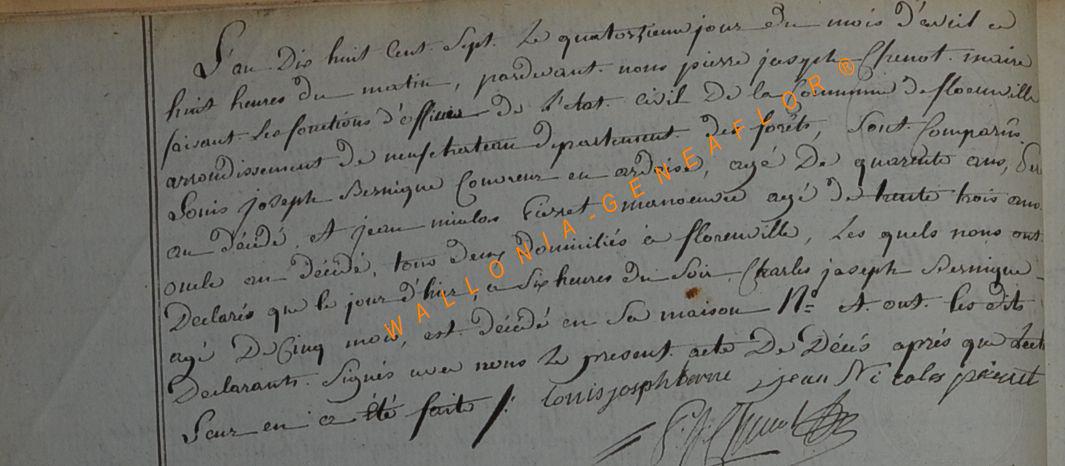 L'an Dix huit Cent Sept Le quatorzieme jour du mois d'avril a
huit heures du matin, pardevant nous pierre joseph Chenot maire
faisant les fonctions d'officier de l'etat civil De la Commune de florenville
arrondissement de neufchateau departement des forêts, Sont Comparûs
Louis joseph Bernique Couvreur en ardoise, agé De quarante ans,
au décédé, et jean nicolas manoeuvre agé de trente trois ans
oncle au décédé, tous deux domiciliés à florenville, Les quels nous ont
Declarés que le jour d'hier, a Six heures du Soir Charles joseph Bernique
agé De Cinq mois, est décédé en Sa maison No. et ont les dits
Declarants Signés avec nous Le present acte De Décès aprés que
Leur en a été faite /.
Louis joseph jean Nicolas
WALLONIA-GENEAFLOR®